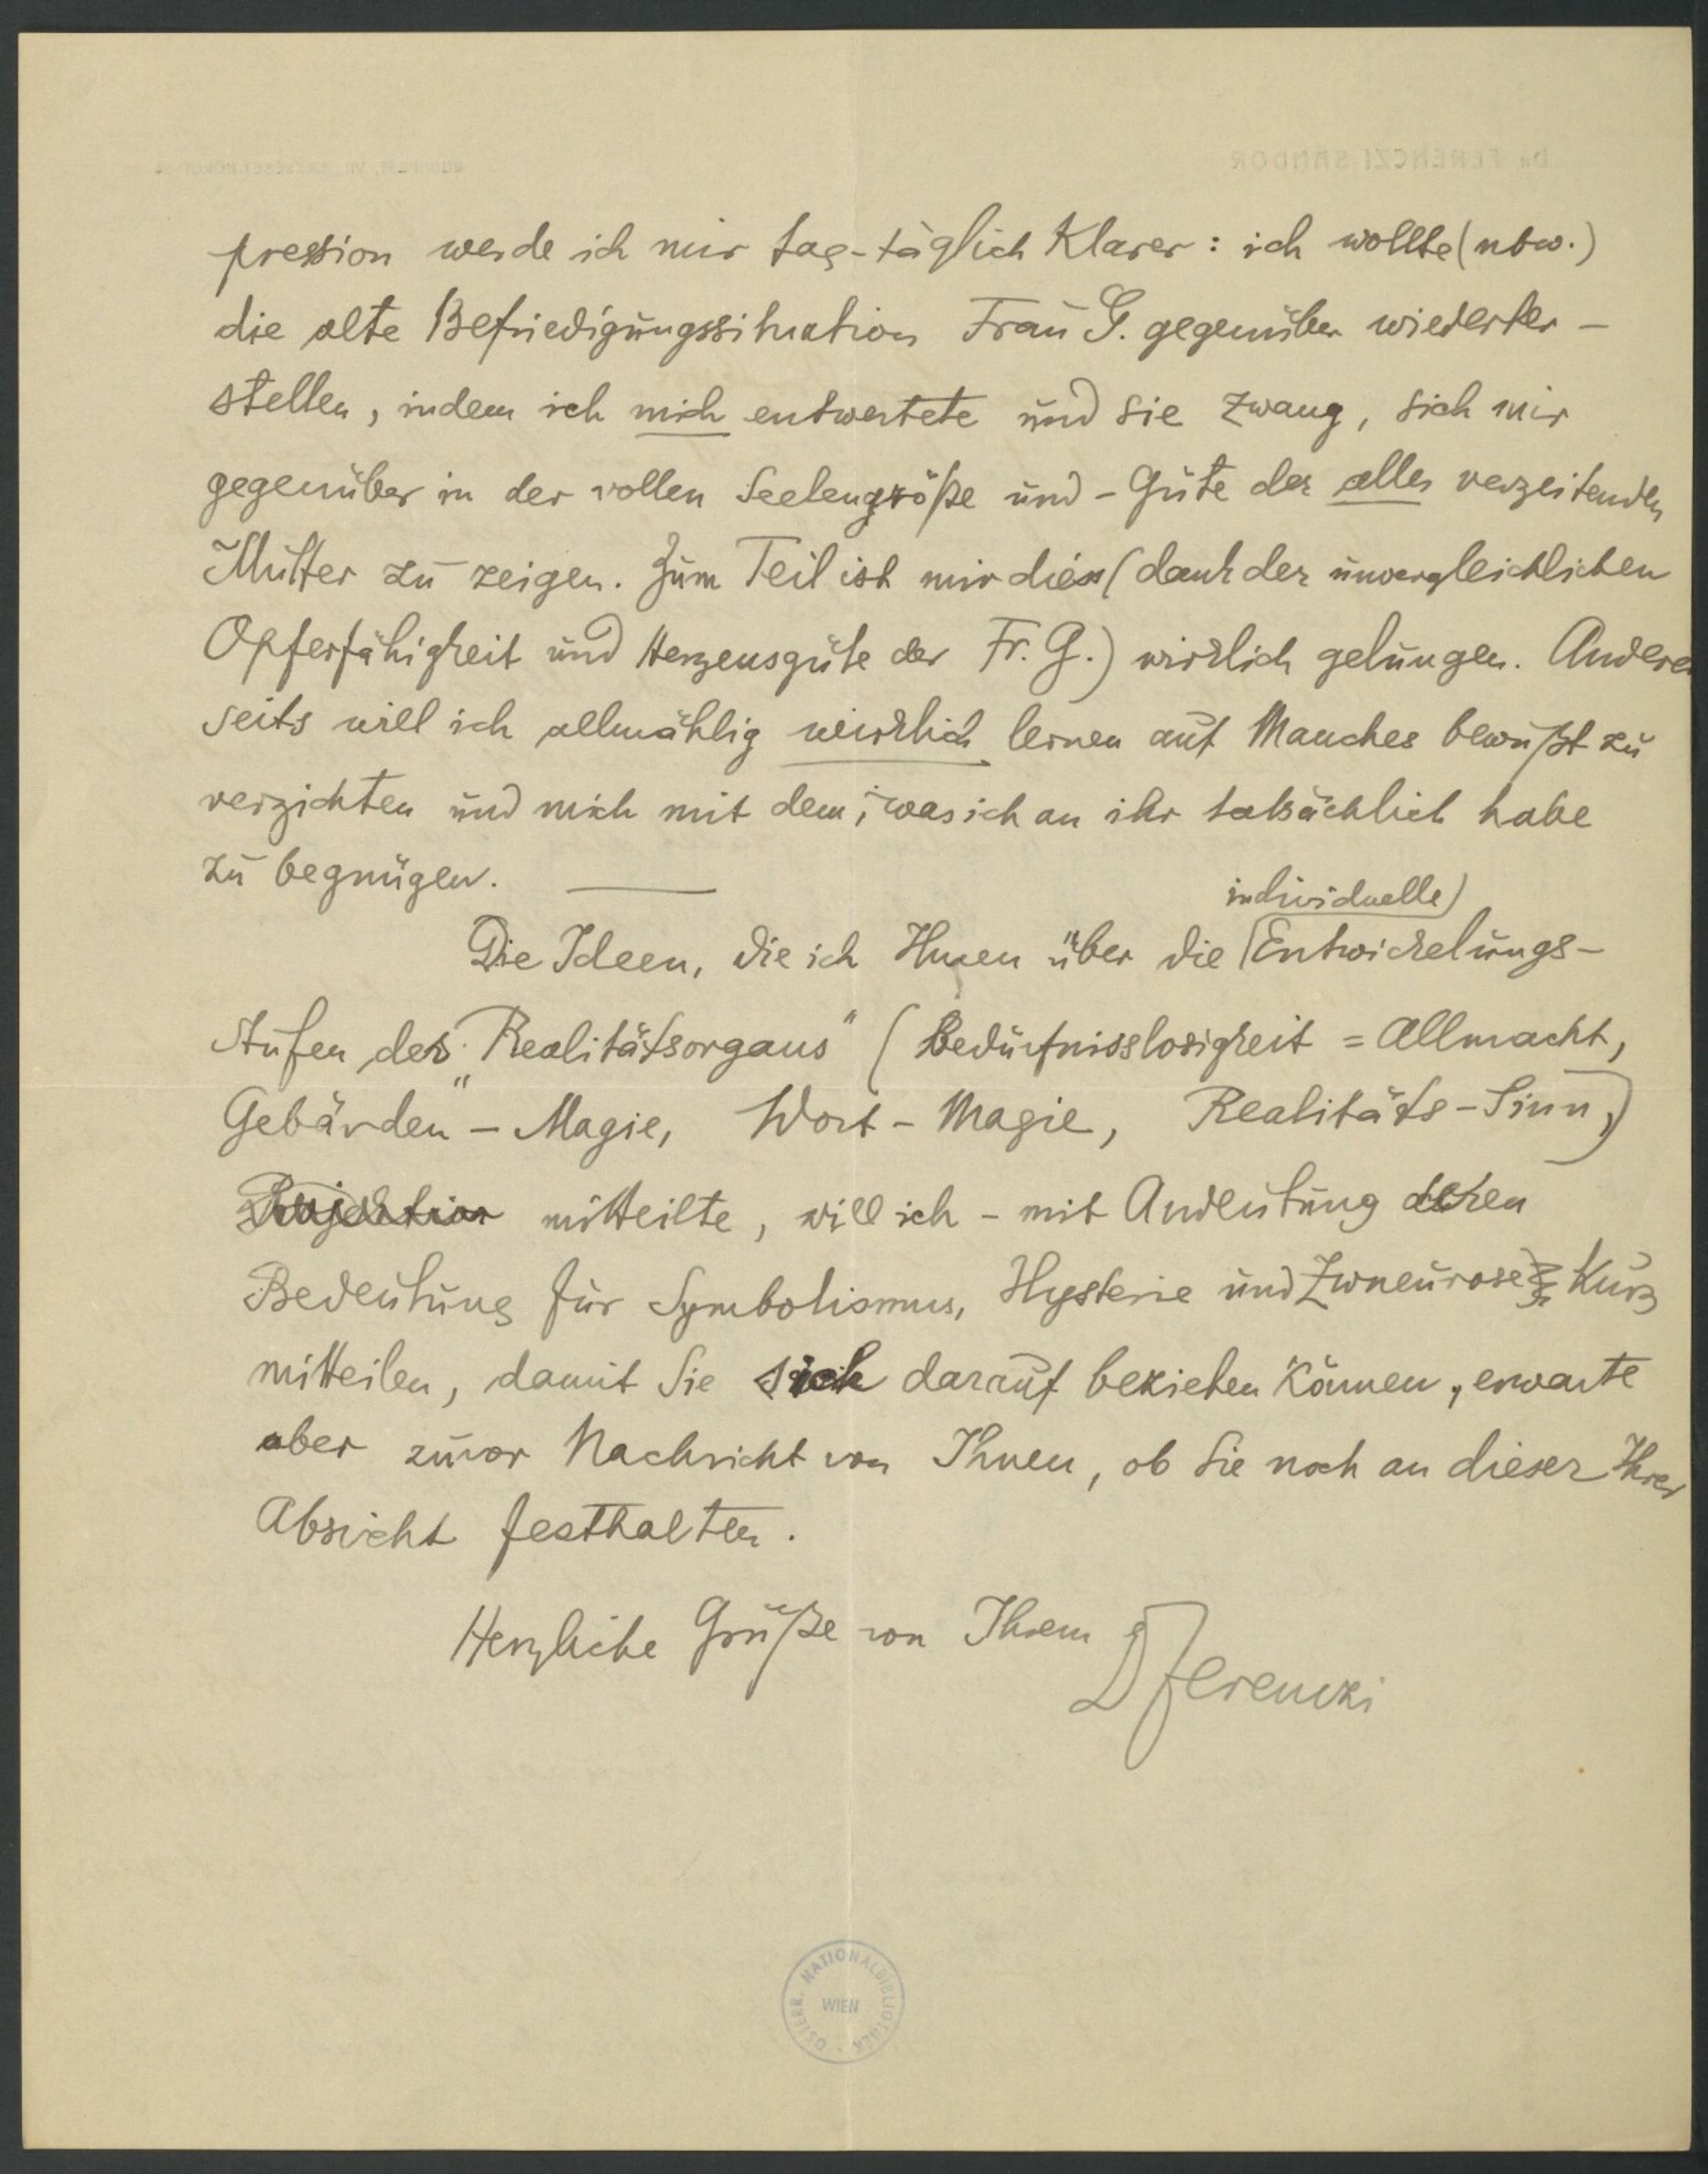 pression werde ich mir tag-täglich klarer: ich wollte (ubw.)
die alte Befriedigungssituation Frau G. gegenüber wiederher-
stellen, indem ich mich entwertete und sie zwang, sich mir
gegenüber in der vollen Seelengröße und -Güte der alles verzeihenden
Mutter zu zeigen. Zum Teil ist mir dies (dank der unvergleichlichen
Opferfähigkeit und Herzensgüte der Fr. G.) wirklich gelungen. Anderer
seits will ich allmählig wirklich lernen auf Manches bewußt zu
verzichten und mich mit dem, was ich an ihr tatsächlich habe
zu begnügen. —
individuelle
Die Ideen, die ich Ihnen über die Entwickelungs-
stufen des "Realitätsorgans" (Bedürfnisslosigkeit = Allmacht,
Gebärden-Magie, Wort-Magie, Realitäts-Sinn,)
Projektion mitteilte, will ich - mit Andeutung deren
Bedeutung für Symbolismus, Hysterie und Zwneurose) kurz
mitteilen, damit Sie sich darauf beziehen können, erwarte
aber zuvor Nachricht von Ihnen, ob Sie noch an dieser Ihrer
Absicht festhalten.
Herzliche Grüße von Ihrem
DFerenczi
DR FERENCZI SÁNDOR
ÖSTERR. NATIONALBIBLIOTHEK
WIEN